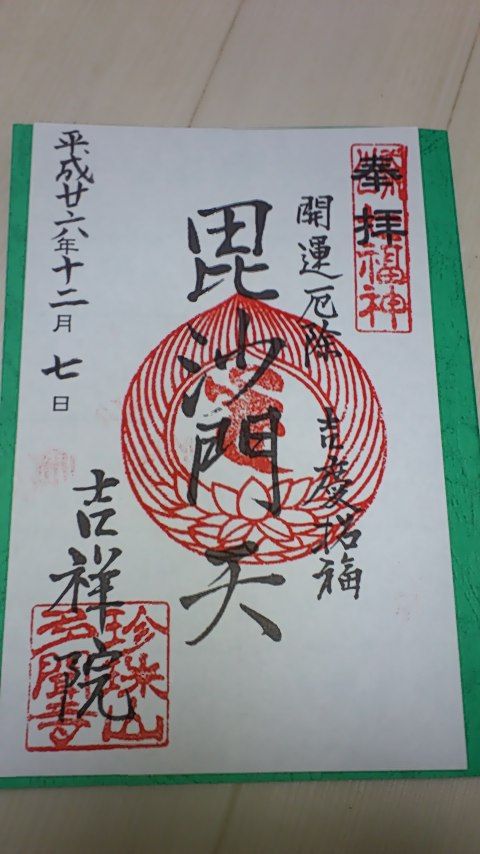 奉拝
福神
開運厄除
吉慶招福
毘沙門天
平成廿六年十二月七日
吉祥院
珍珠山
多聞寺